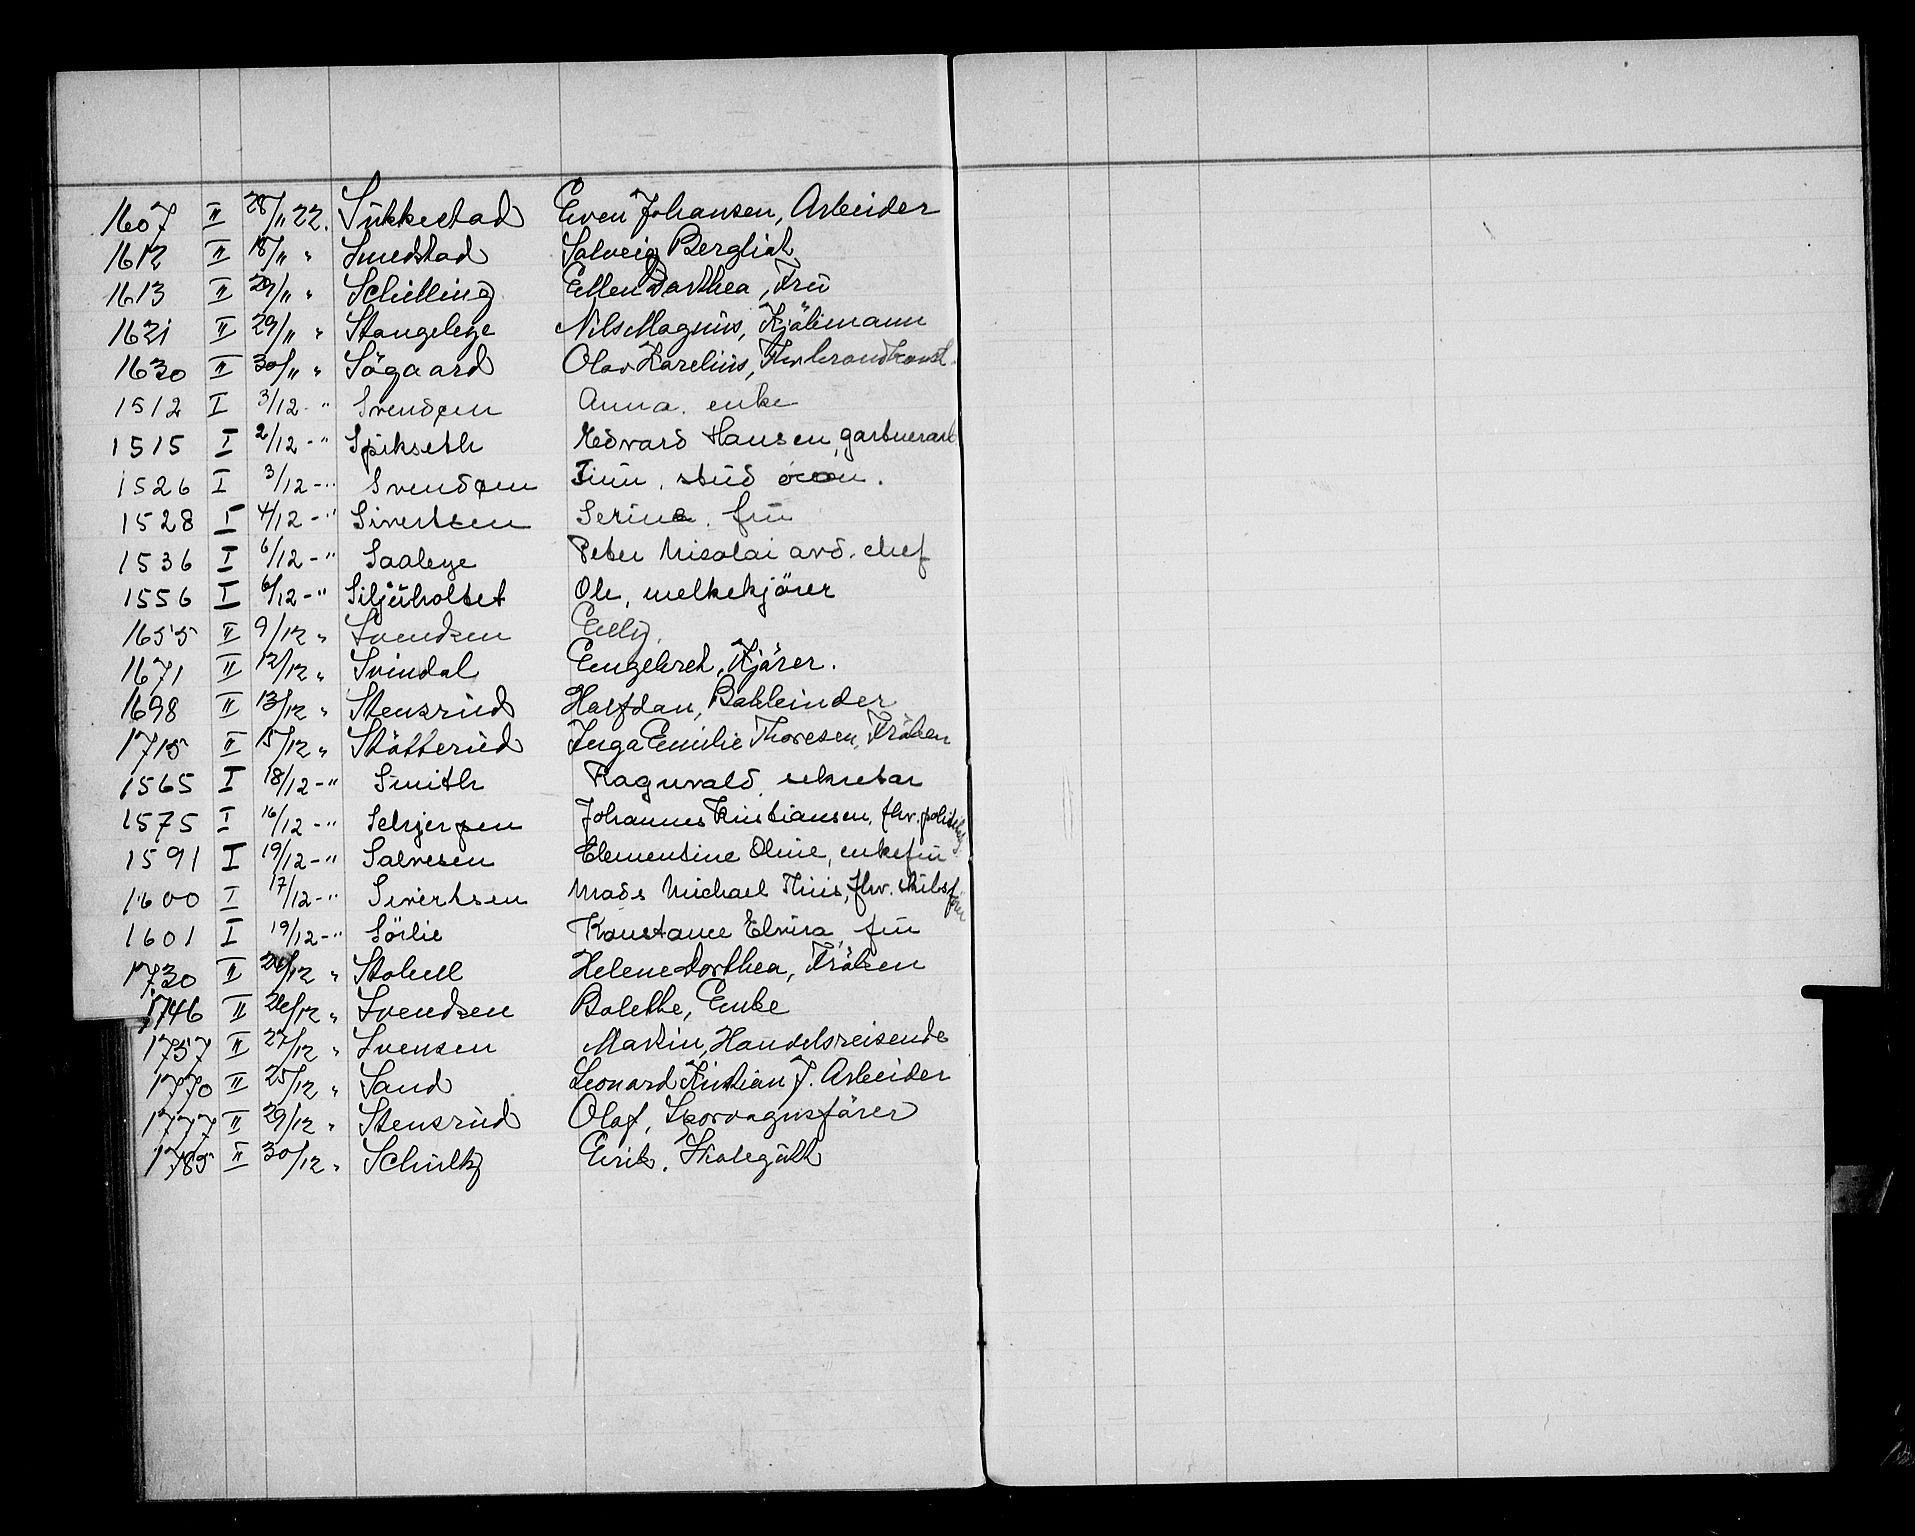 1607 II 28/11 22. Sukkestad Even Johansen, Arbeider
1612 II 18/11 " Smedstad Solveig Bergliot
1613 II 29/11 " Schilling Ellen Dorthea, Fru
1621 II 29/11 " Stangebye Nils Magnus, Kjøbmann
1630 II 30/11 " Søgaard Olav Karelius, Fhv. brandkonst.
1512 I 3/12 - " Svendsen Anna. enke
1515 I 2/12 - " Spikseth Medvard Hansen, gartnerarb
1526 I 3/12 - " Svendsen Finn. stud oecon.
1528 I 4/12 - " Sivertsen Serina. fru
1536 I 6/12 - " Saabye Peter Nicolai avd. chef
1556 I 6/12 - " Siljuholtet Ole, melkekjører
1655 II 9/12 " Svendsen Elly.
1671 II 12/12 " Svindal Engebret, Kjører.
1698 II 13/12 " Stensrud Halfdan, Bokbinder
1715 II 15/12 " Støtterud Inga Emilie Thoresen, Frøken
1565 I 18/12 - " Smith Ragnvald. sekretær
1575 I 16/12 - " Schjerpen Johannes Kristiansen, fhv. politibtj
1591 I 19/12 - " Salvesen Clementine Oline, enkefru
1600 I 17/12 - " Sivertsen Mads Michael Thiis, fhv. skibsfører
1601 I 19/12 - " Sørlie Konstance Elvira, fru
1730 II 20/12 " Stabell Helene Dorthea, Frøken
1746 II 26/12 " Svendsen Bolethe, Enke
1757 II 27/12 " Svensen Martin, Handelsreisende
1770 II 25/12 " Sand Leonard Kristian J. Arbeider
1777 II 29/12 " Stensrud Olaf, Sporvognsfører
1785 II 30/12 " Schultz Erik. Skolegutt